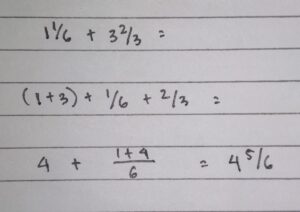 1 1/6 + 3 2/3 =
(1+3) + 1/6 + 2/3 =
4 + (1+4)/6 = 4 5/6